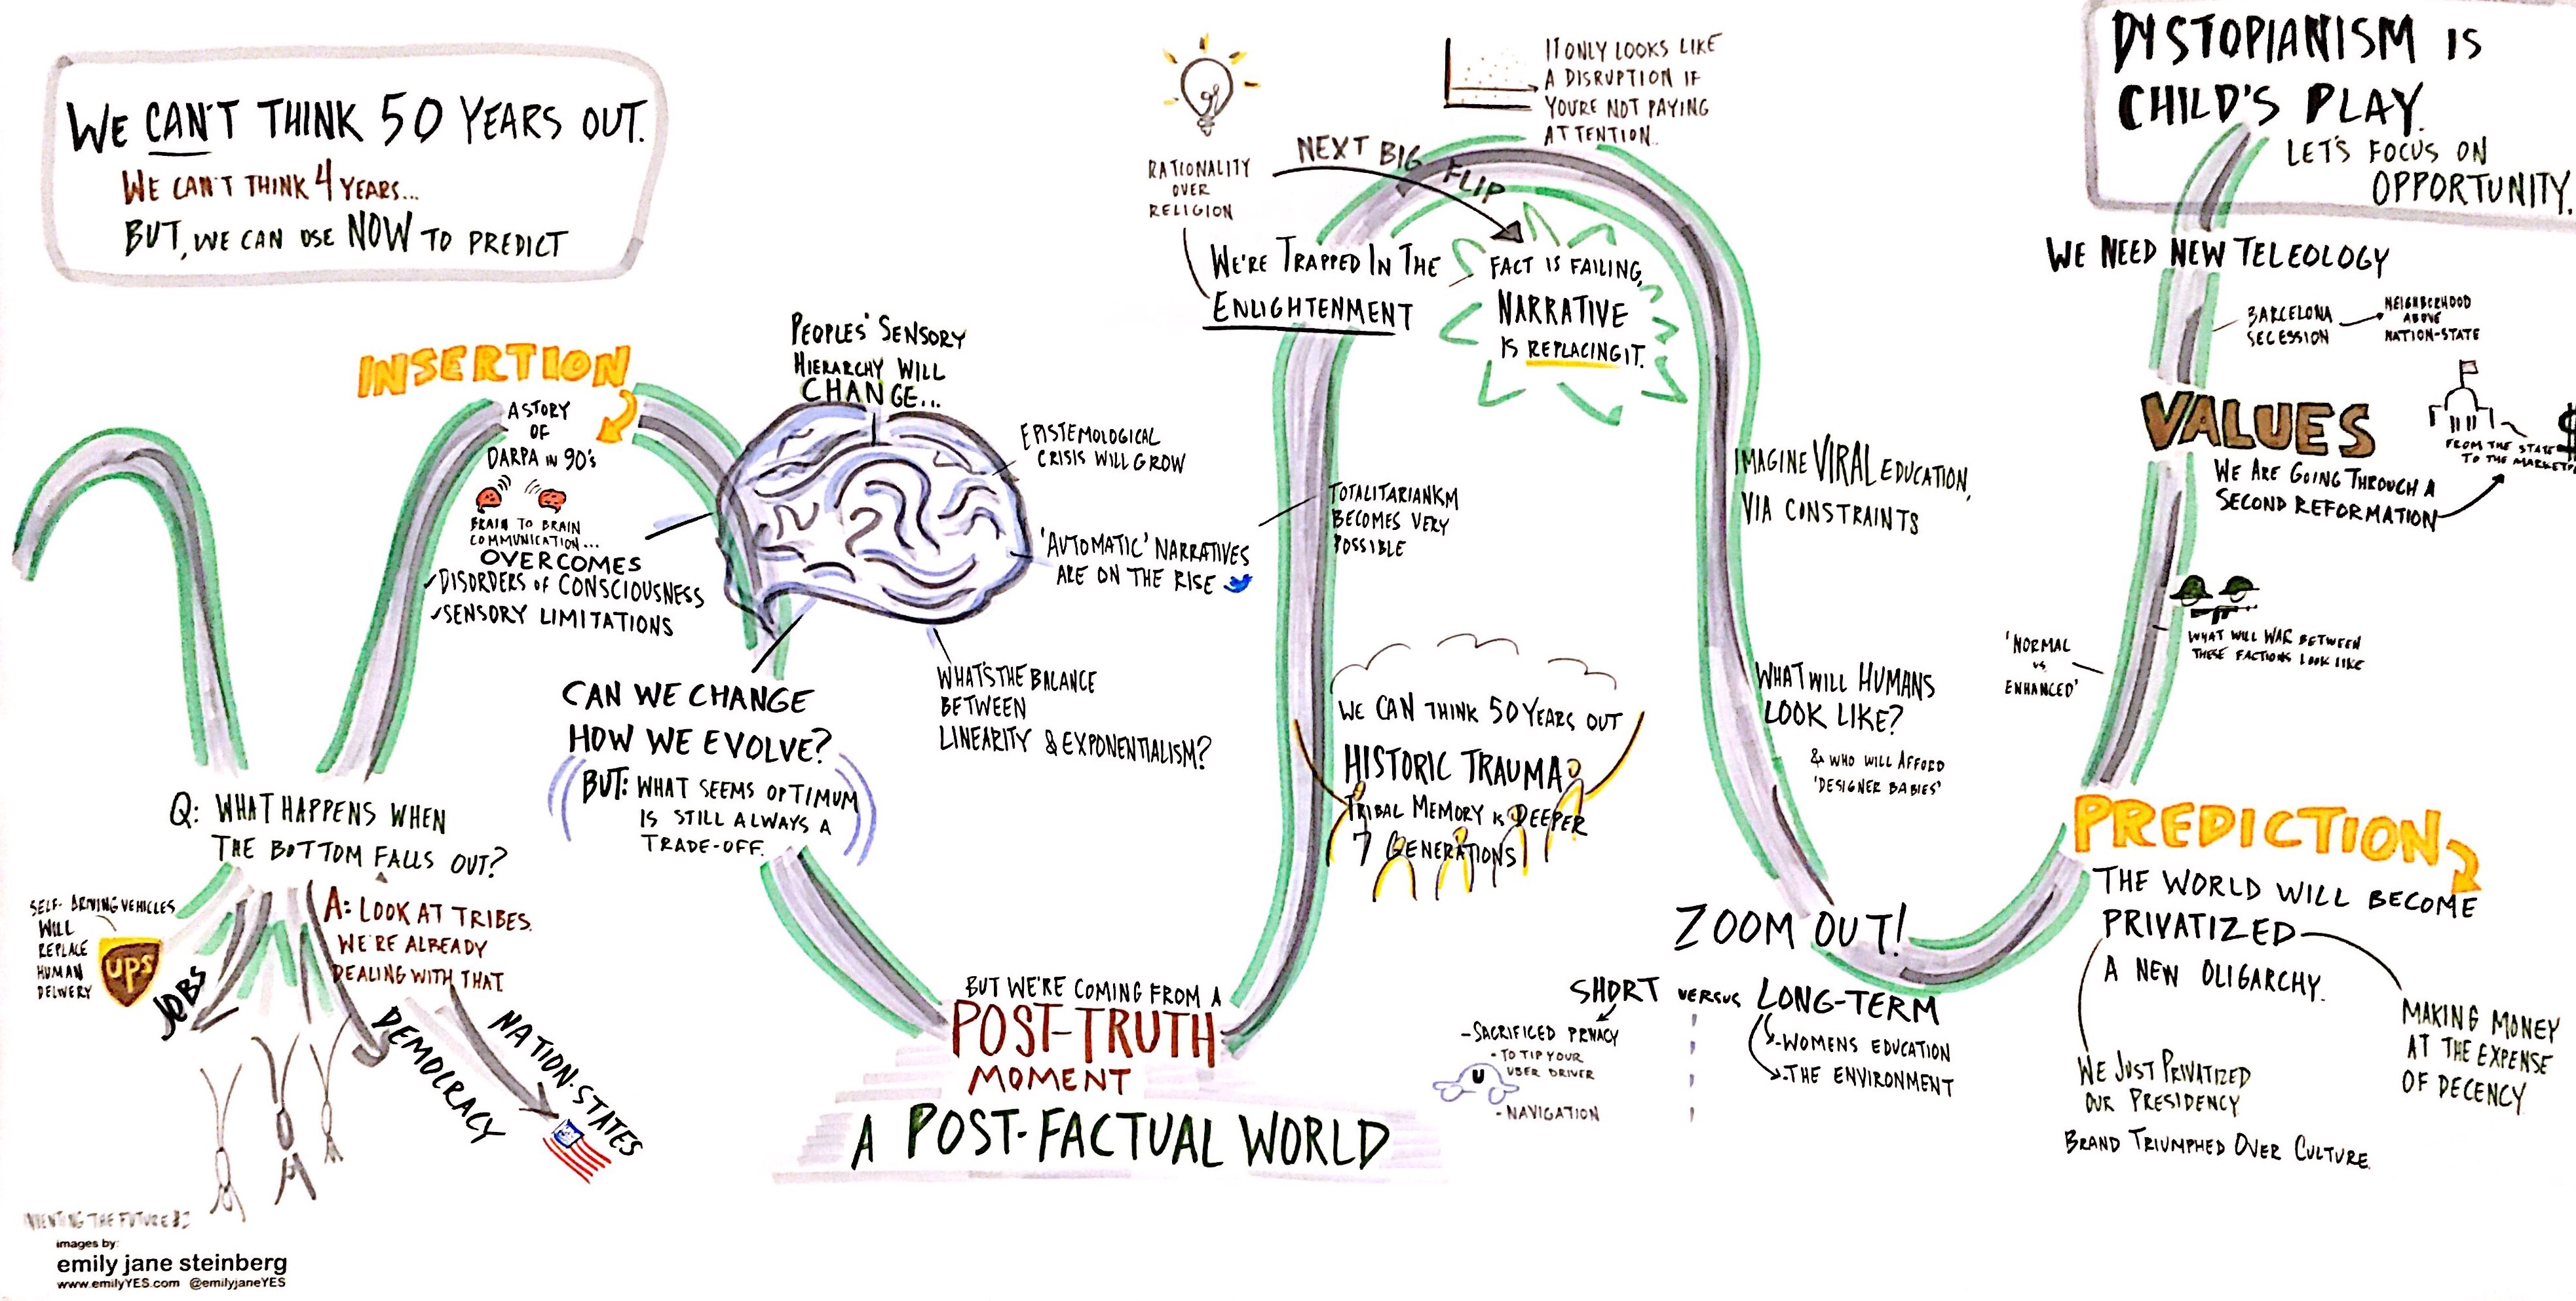 WE CAN'T THINK 50 YEARS OUT.
WE CAN'T THINK 4 YEARS...
BUT, WE CAN USE NOW TO PREDICT
INSERTION
A STORY
OF
DARPA IN 90'S
BRAIN TO BRAIN
COMMUNICATION...
OVERCOMES
✓DISORDERS OF CONSCIOUSNESS
✓SENSORY LIMITATIONS
Q: WHAT HAPPENS WHEN
THE BOTTOM FALLS OUT?
A: LOOK AT TRIBES.
WE'RE ALREADY
DEALING WITH THAT.
SELF-DRIVING VEHICLES
WILL
REPLACE
HUMAN
DELIVERY
UPS
JOBS
DEMOCRACY
NATION-STATES
PEOPLES' SENSORY
HIERARCHY WILL
CHANGE...
EPISTEMOLOGICAL
CRISIS WILL GROW
'AUTOMATIC' NARRATIVES
ARE ON THE RISE
WHAT'S THE BALANCE
BETWEEN
LINEARITY & EXPONENTIALISM?
CAN WE CHANGE
HOW WE EVOLVE?
BUT: WHAT SEEMS OPTIMUM
IS STILL ALWAYS A
TRADE-OFF.
BUT WE'RE COMING FROM A
POST-TRUTH
MOMENT
A POST-FACTUAL WORLD
RATIONALITY
OVER
RELIGION
NEXT BIG FLIP
IT ONLY LOOKS LIKE
A DISRUPTION IF
YOU'RE NOT PAYING
ATTENTION..
WE'RE TRAPPED IN THE
ENLIGHTENMENT
FACT IS FAILING,
NARRATIVE
IS REPLACING IT.
TOTALITARIANISM
BECOMES VERY
POSSIBLE
WE CAN THINK 50 YEARS OUT
HISTORIC TRAUMA
TRIBAL MEMORY IS DEEPER
7 GENERATIONS
IMAGINE VIRAL EDUCATION,
VIA CONSTRAINTS
WHAT WILL HUMANS
LOOK LIKE?
& WHO WILL AFFORD
'DESIGNER BABIES'
ZOOM OUT!
SHORT VERSUS LONG-TERM
-SACRIFICED PRIVACY
-TO TIP YOUR
UBER DRIVER
U
-NAVIGATION
-WOMENS EDUCATION
-THE ENVIRONMENT
DYSTOPIANISM IS
CHILD'S PLAY.
LET'S FOCUS ON
OPPORTUNITY.
WE NEED NEW TELEOLOGY
BARCELONA
SECESSION
NEIGHBORHOOD
ABOVE
NATION-STATE
VALUES
WE ARE GOING THROUGH A
SECOND REFORMATION
$
FROM THE STATE
TO THE
WHAT WILL WAR BETWEEN
THESE FACTIONS LOOK LIKE
'NORMAL
VS
ENHANCED'
PREDICTION
THE WORLD WILL BECOME
PRIVATIZED
A NEW OLIGARCHY.
WE JUST PRIVATIZED
OUR PRESIDENCY
BRAND TRIUMPHED OVER CULTURE.
MAKING MONEY
AT THE EXPENSE
OF DECENCY
INVENTING THE FUTURE
images by:
emily jane steinberg
www.emilyYES.com @emilyjaneYES